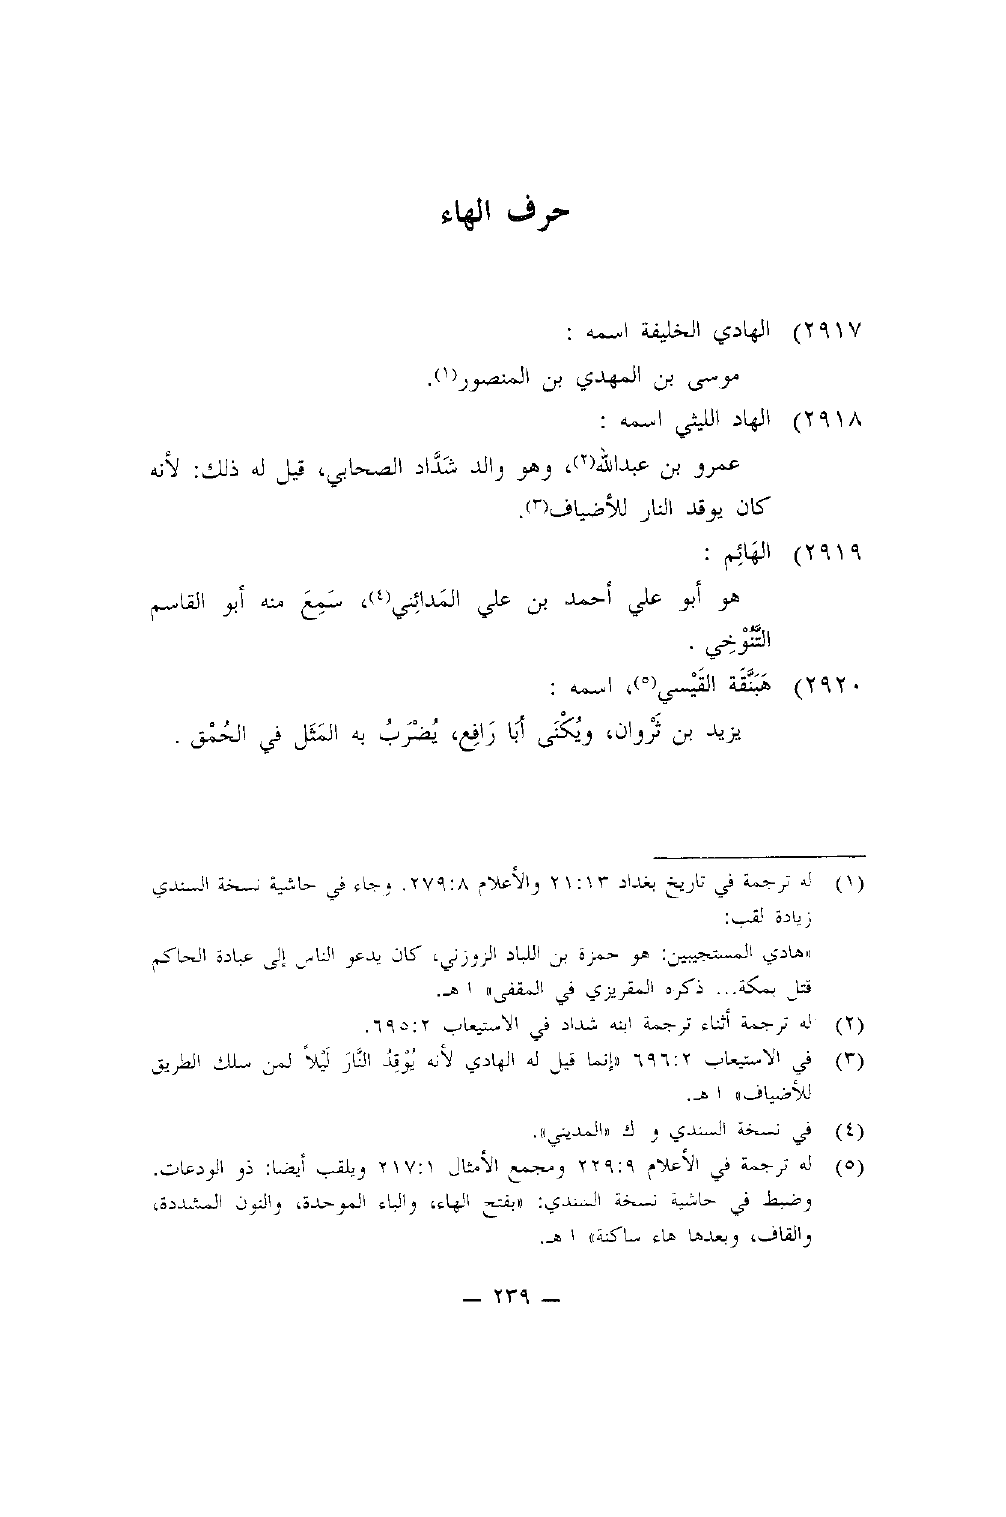 حرف الهاء
٢٩١٧) الهادي الخليفة اسمه :
موسى بن المهدي بن المنصور(١).
٢٩١٨) الهاد الليثي اسمه :
عمرو بن عبدالله(٢)، وهو والد شَدَّاد الصحابي، قيل له ذلك: لأنه
كان يوقد النار للأضياف(٣).
٢٩١٩) الهَائِم :
هو أبو علي أحمد بن علي المَدائِني(٤)، سَمِعَ منه أبو القاسم
التَّنُوْخِي .
٢٩٢٠) هَبَنَّقَة القَيْسي(٥)، اسمه :
يزيد بن ثَرْوان، ويُكْنَى أبَا رَافِع، يُضْرَبُ به المَثَل في الحُمْق .
(١) له ترجمة في تاريخ بغداد ٢١:١٣ والأعلام ٢٧٩:٨. وجاء في حاشية نسخة السندي
زيادة لقب:
«هادي المستجيبين: هو حمزة بن اللباد الزوزني، كان يدعو الناس إلى عبادة الحاكم
قتل بمكة... ذكره المقريزي في المقفى» ا هـ.
(٢) له ترجمة أثناء ترجمة ابنه شداد في الاستيعاب ٦٩٥:٢.
(٣) في الاستيعاب ٦٩٦:٢ «إنما قيل له الهادي لأنه يُوْقِدُ النَّارَ لَيْلاً لمن سلك الطريق
للأضياف» ا هـ.
(٤) في نسخة السندي و ك «المديني».
(٥) له ترجمة في الأعلام ٢٢٩:٩ ومجمع الأمثال ٢١٧:١ ويلقب أيضا: ذو الودعات.
وضبط في حاشية نسخة السندي: «بفتح الهاء، والباء الموحدة، والنون المشددة،
والقاف، وبعدها هاء ساكنة» ا هـ.
— ٢٣٩ —